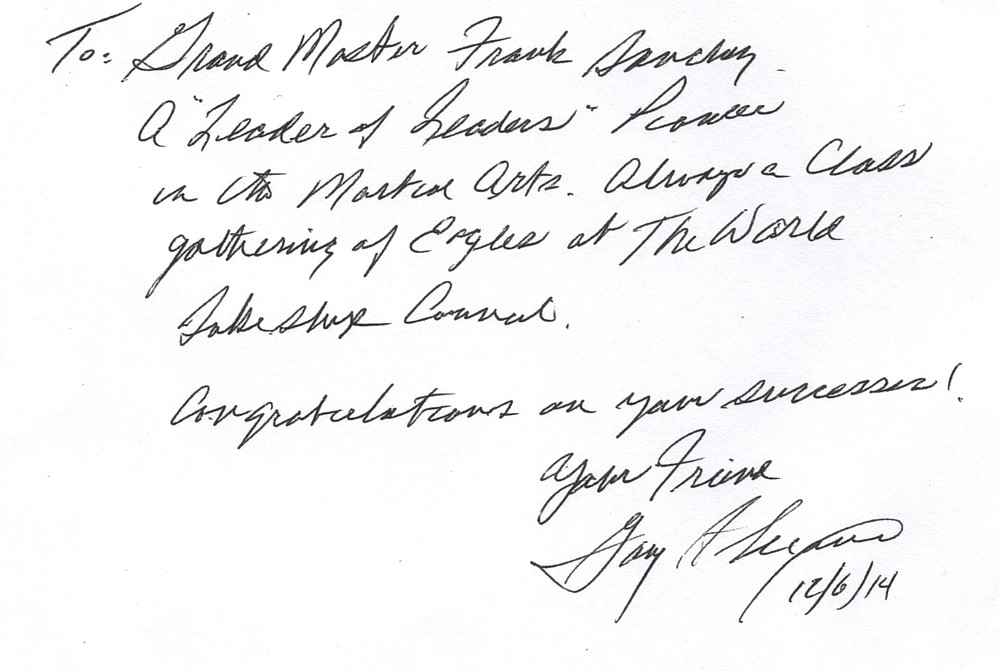 To: Grand Master Frank Sanchez
A "Leader of Leaders" Pioneer
in the Martial Arts. Always a Class
gathering of Eagles at The World
Sokeship Council.
Congratulations on your successes!
Your Friend
Gary
12/6/14